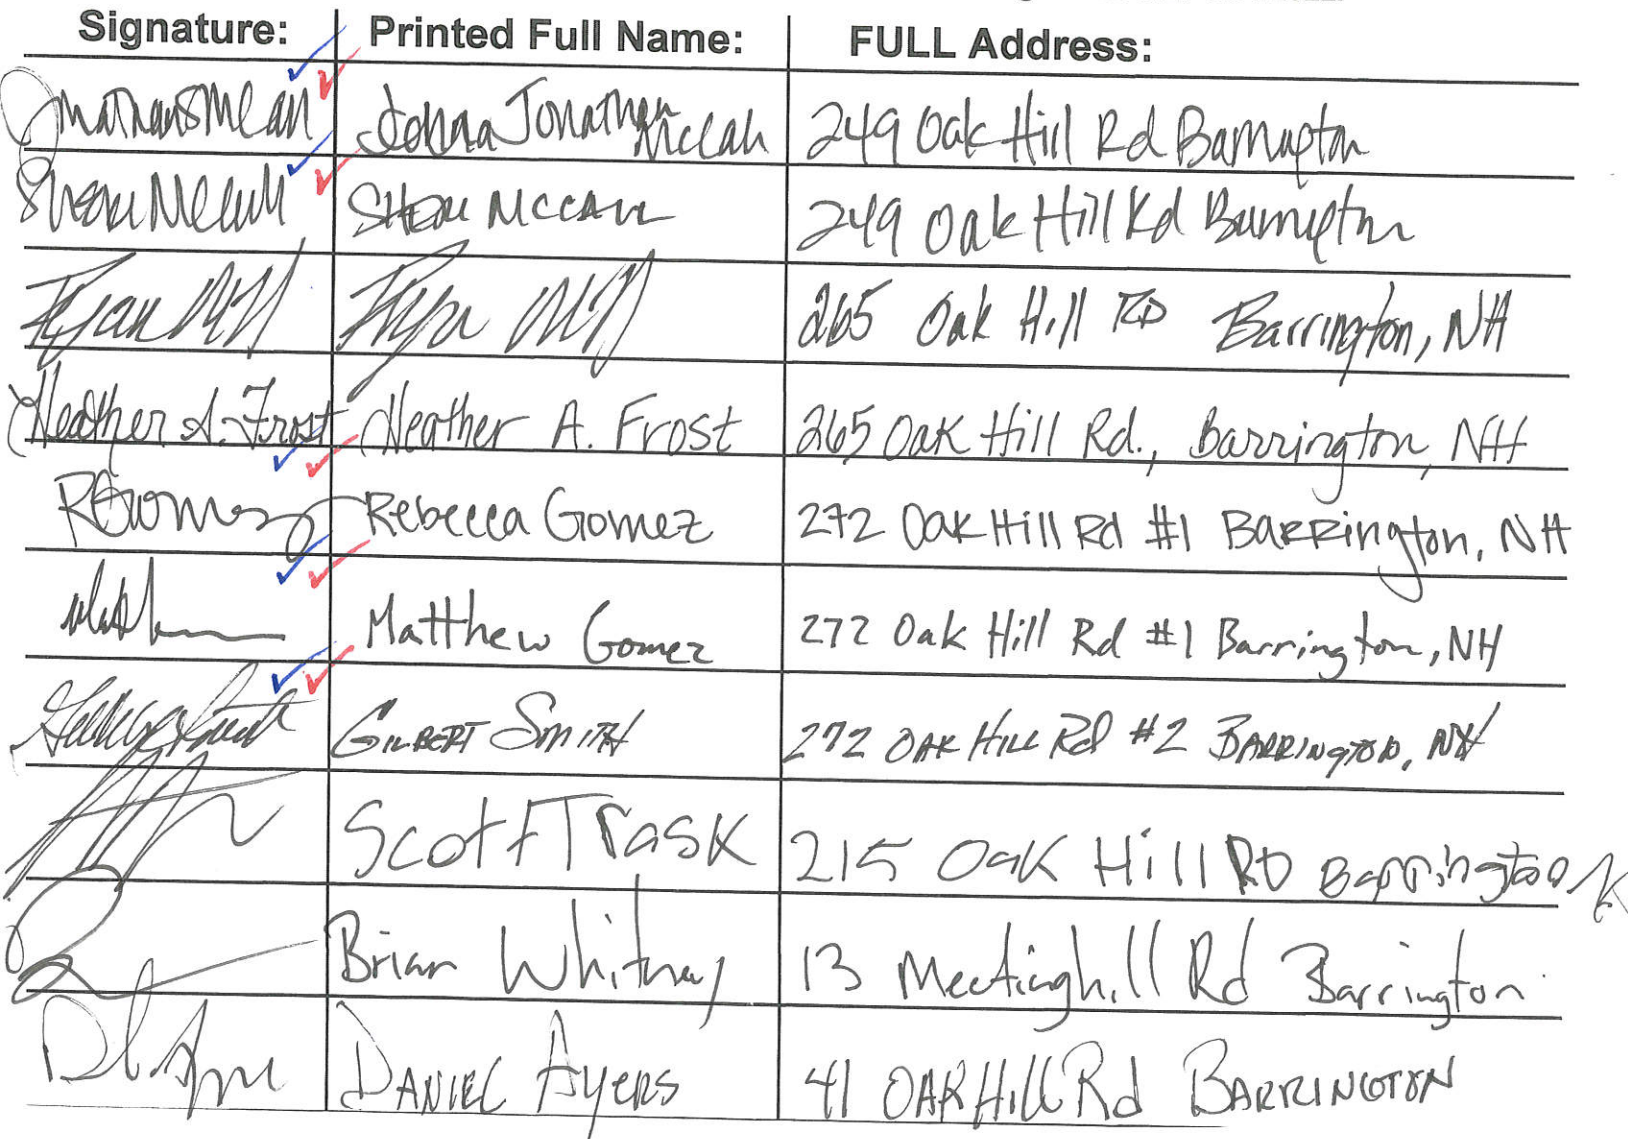 Signature: Printed Full Name: FULL Address:
Jonathan McCall 249 Oak Hill Rd Barrington
McCall SHERI MCCALL 249 Oak Hill Rd Barrington
Ryan Ryan 265 Oak Hill RD Barrington, NH
Heather A. Frost Heather A. Frost 265 Oak Hill Rd., Barrington, NH
RGomez Rebecca Gomez 272 Oak Hill Rd #1 BARRington, NH
Matthew Gomez 272 Oak Hill Rd #1 Barrington, NH
GILBERT SMITH 272 OAK HILL Rd #2 BARRINGTON, NH
Scott Trask 215 Oak Hill RD Barrington
Brian Whitney 13 Meetinghill Rd Barrington
DANIEL AYERS 41 OAK Hill Rd BARRINGTON